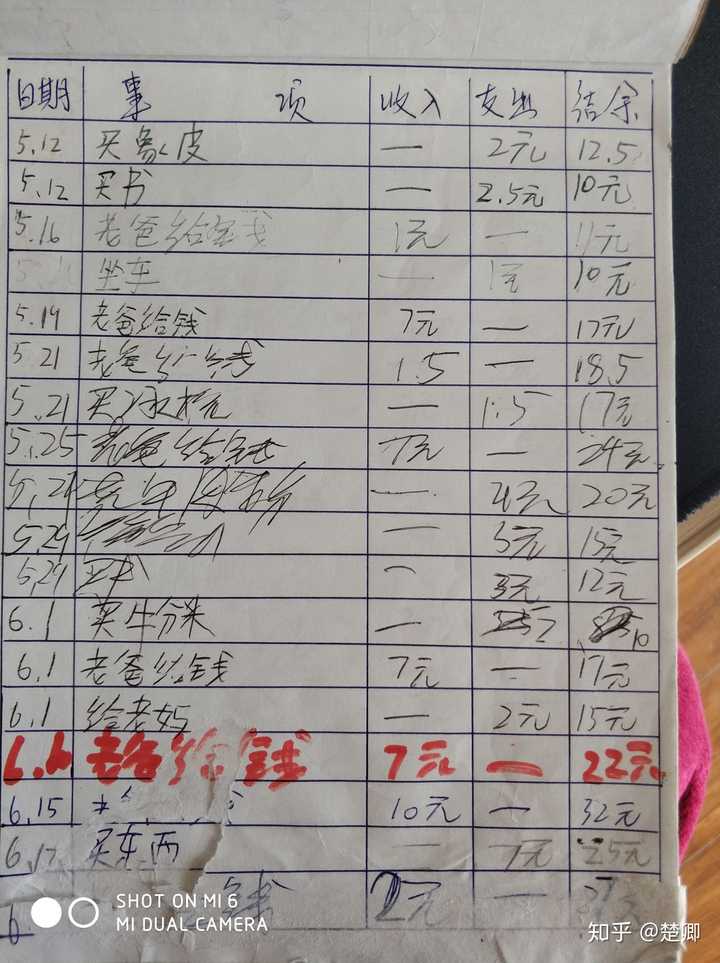 日期 事 项 收入 支出 结余
5.12 买象皮 — 2元 12.5
5.12 买书 — 2.5元 10元
5.16 老爸给钱 1元 — 11元
坐车 — 1元 10元
5.19 老爸给钱 7元 — 17元
5.21 老爸给钱 1.5 — 18.5
5.21 买 — 1.5 17元
5.25 老爸给钱 7元 — 24元
— 4元 20元
5.29 — 5元 15元
5.29 买书 — 3元 12元
6.1 买牛分米 — 2 10
6.1 老爸给钱 7元 — 17元
6.1 给老妈 — 2元 15元
6.6 老爸给钱 7元 — 22元
6.15 10元 — 32元
6.17 买东西 — 7元 25元
6 钱 2元 —
SHOT ON MI 6
MI DUAL CAMERA
知乎 @楚卿